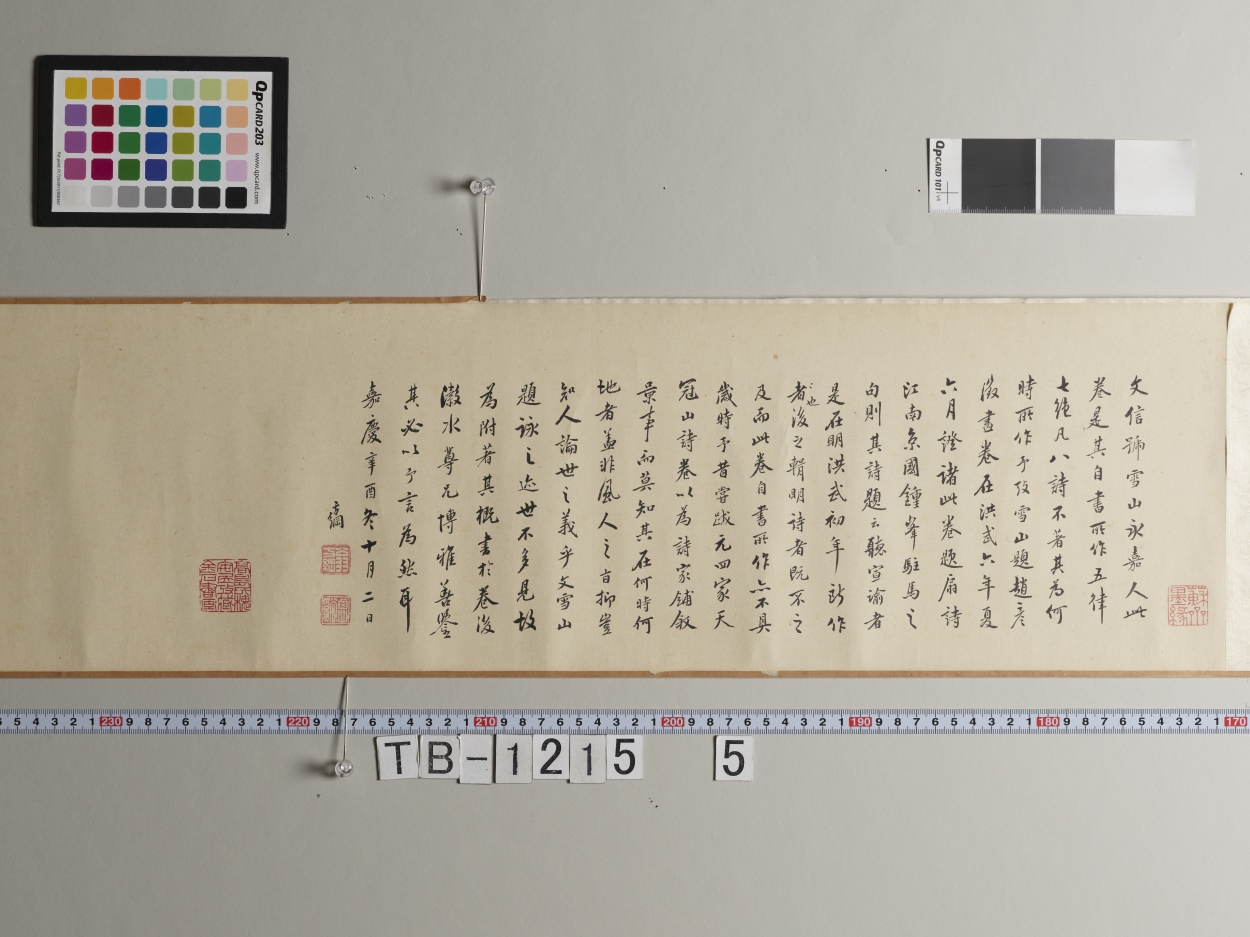 QPCARD 203 www.qpcard.com
QPCARD 101 v4
文信號雪山永嘉人此
卷是其自書所作五律
七絕凡八詩不著其為何
時所作予攷雪山題趙彥
徵畫卷在洪武六年夏
六月證諸此卷題扇詩
江南系國鍾峯駐馬之
句則其詩題云聽宣諭者
是在明洪武初年所作
者也後之輯明詩者既不之
及而此卷自書所作亦不具
歲時予昔嘗跋元四家天
冠山詩卷以為詩家鋪敘
景事而莫知其在何時何
地者蓋非風人之旨抑豈
知人論世之義乎文雪山
題詠之迹世不多見故
為附著其概書於卷後
澂水尊兄博雅善鑒
其必以予言為然耶
嘉慶辛酉冬十月二日
方綱
6 5 4 3 2 1 230 9 8 7 6 5 4 3 2 1 220 9 8 7 6 5 4 3 2 1 210 9 8 7 6 5 4 3 2 1 200 9 8 7 6 5 4 3 2 1 190 9 8 7 6 5 4 3 2 1 180 9 8 7 6 5 4 3 2 1 170
TB-1215 5